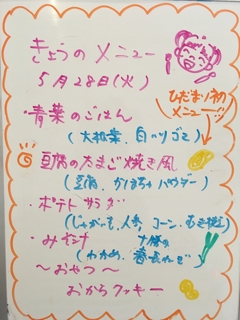 きょうのメニュー
5月28日(火)
ひだまり初
メニュー
・青菜のごはん
(大根葉、白いりゴマ)
豆腐のたまご焼き風
(豆腐、かぼちゃパウダー)
・ポテトサラダ
(じゃがいも、人参、コーン、むき枝豆)
・みそ汁
(わかめ、
～おやつ～
おからクッキー